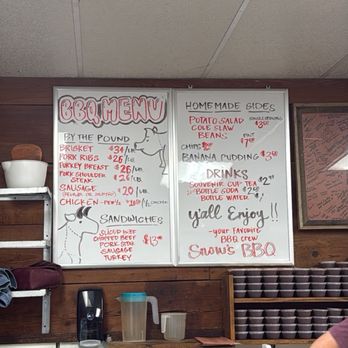 BBQ MENU
BY THE POUND
BRISKET $34/LB
PORK RIBS $26/LB
TURKEY BREAST $26/LB
PORK SHOULDER STEAK $26/LB
SAUSAGE $20/LB
CHICKEN
SANDWICHES
SLICED BEEF
CHOPPED BEEF
PORK
SAUSAGE
TURKEY
HOMEMADE SIDES
POTATO SALAD
COLE SLAW
BEANS
PINT
CHIPS
BANANA PUDDING
DRINKS
SOUVENIR CUP TEA
BOTTLE SODA
BOTTLE WATER
y'all Enjoy!!
-YOUR FAVORITE
BBQ CREW
Snow's BBQ